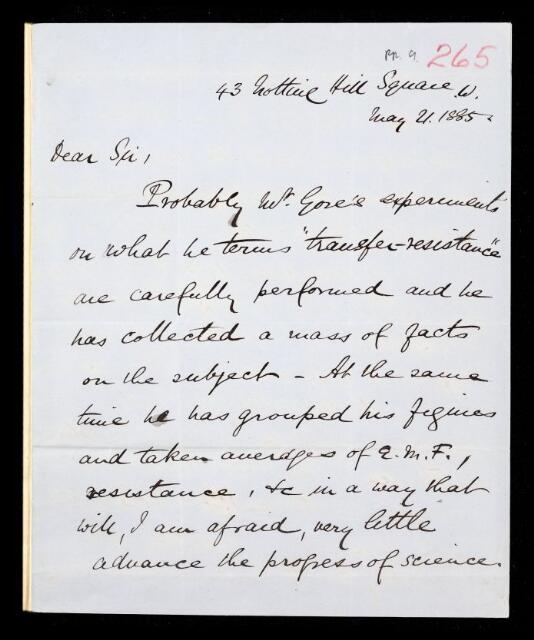 RR. 9. 265
43 Notting Hill Square W.
May 21. 1885.
Dear Sir,
Probably Mr. Gore's experiments
on what he terms "transfer-resistance"
are carefully performed and he
has collected a mass of facts
on the subject - At the same
time he has grouped his figures
and taken averages of E.M.F.,
resistance, &c in a way that
will, I am afraid, very little
advance the progress of science.